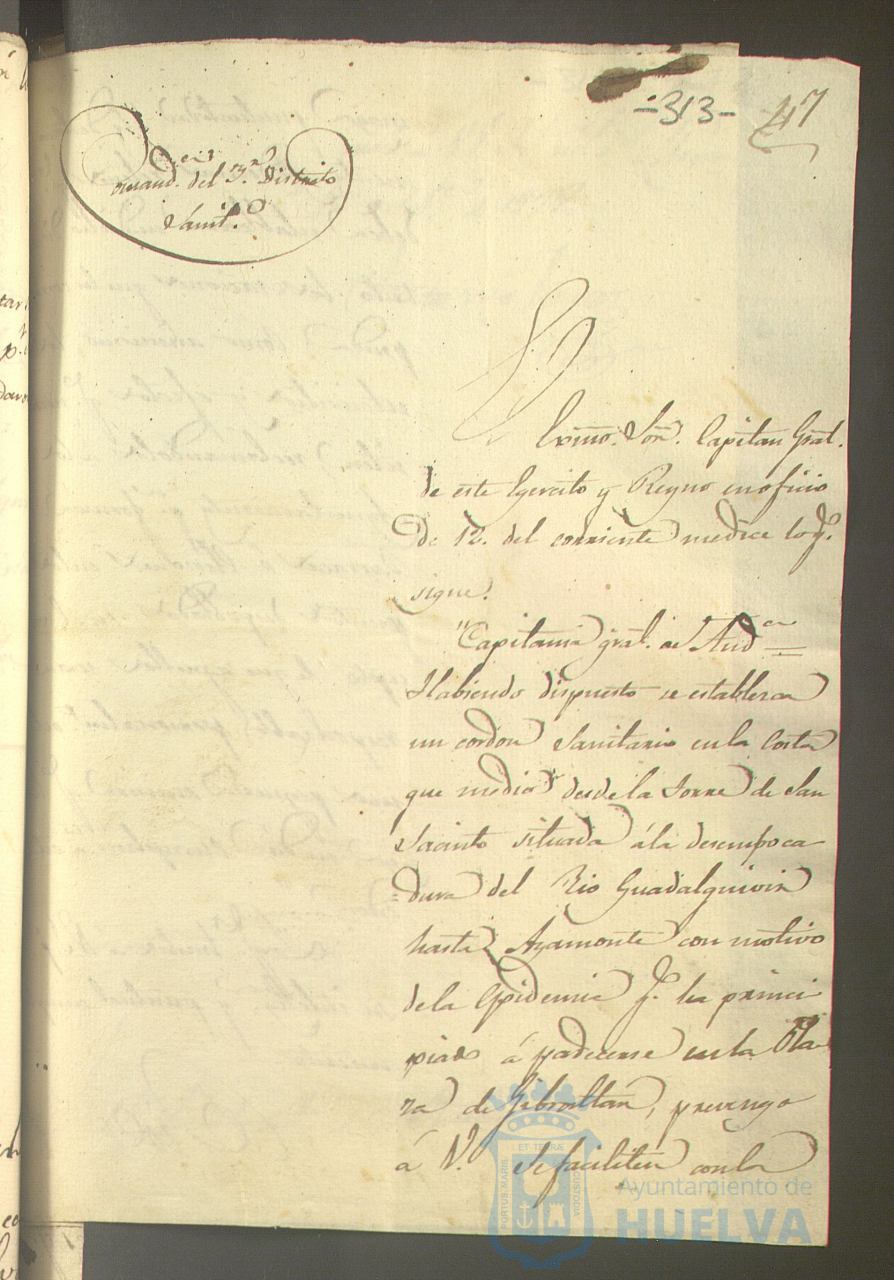 -313- 47
Comand.cia del 3.er Distrito
Sanit.o
El
Exmo. Sōr. Capitan Gr̄al.
de este Egercito y Reyno en oficio
de 12. del corriente me dice lo q.e
sigue.
"Capitania gr̄al. de And.cia =
Habiendo dispuesto se establezca
un cordon Sanitario en la Costa
que media desde la Torre de San
Jacinto situada á la desemboca
=dura del Rio Guadalquivir
hasta Ayamonte con motivo
de la Epidemia q.e ha princi
piado á padecerse en la Pla
za de Gibraltar, prevengo
á V. se faciliten con la
ET TERRÆ
PORTUS MARIS
CUSTODIA
Ayuntamiento de
HUELVA